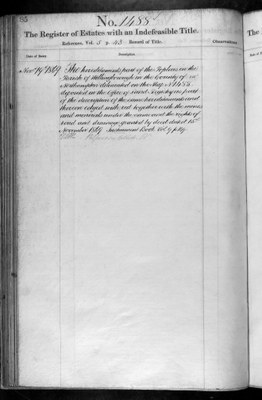 No. 1488
The Register of Estates with an Indefeasible Title.
Reference, Vol. 5 p. Record of Title.
Date of Entry.
Description.
Observations.
Nov 19th 1869 The hereditaments part of the in the
Parish of in the County of
Northampton delineated on the Map No. 1488
deposited in the Office of Land Registry as part
of the description of the same hereditaments and
thereon edged with red together with the mines
and minerals under the same and the rights of
road and drainage granted by deed dated 15th
November 1869 Instrument Book Vol. 9 p.